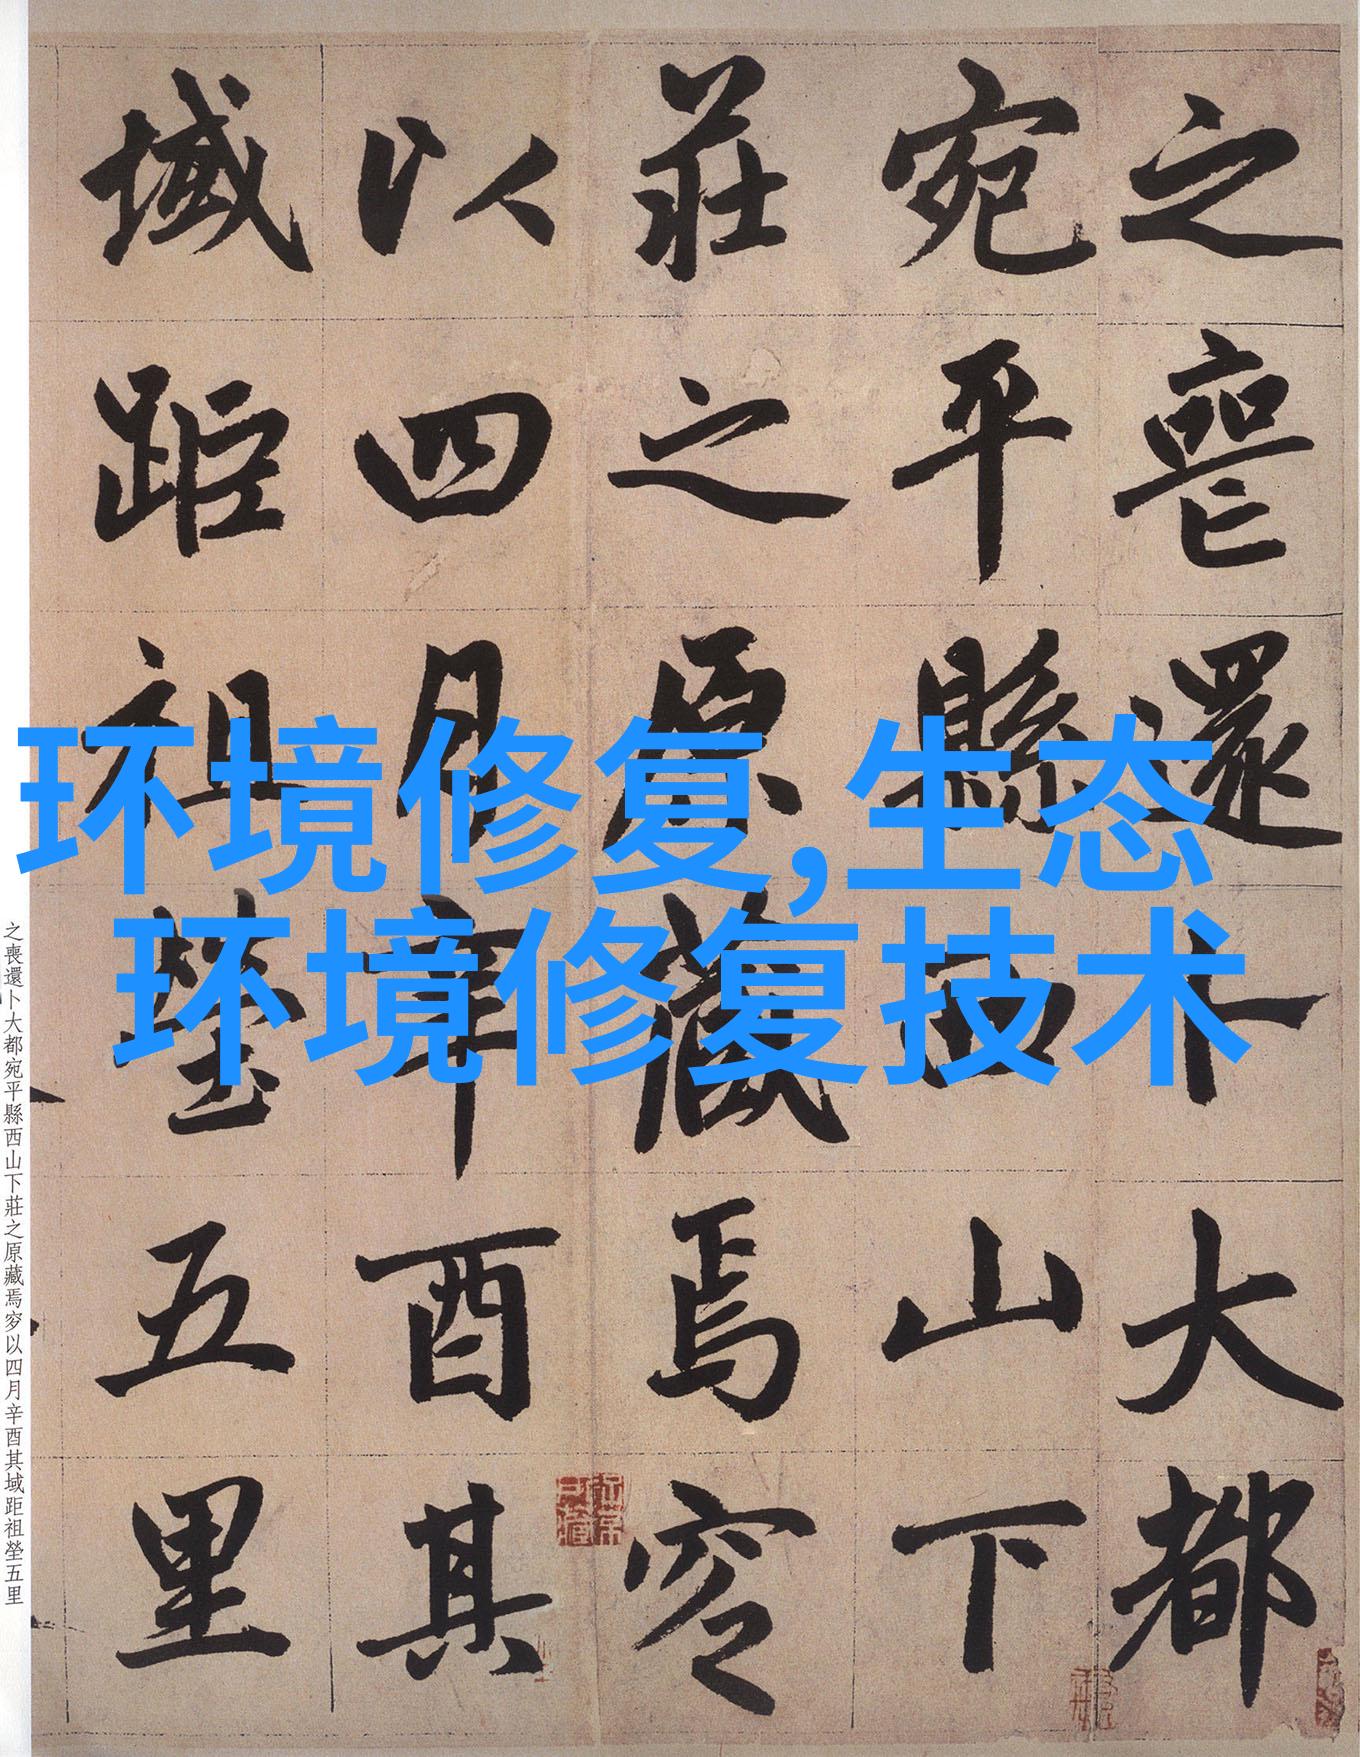 之喪還卜大都
宛平縣西山下
莊之原藏焉穸
以四月辛酉其
域距祖塋五里
环境修复,生态
环境修复技术
之喪還卜大都宛平縣西山下莊之原藏焉穸以四月辛酉其域距祖塋五里